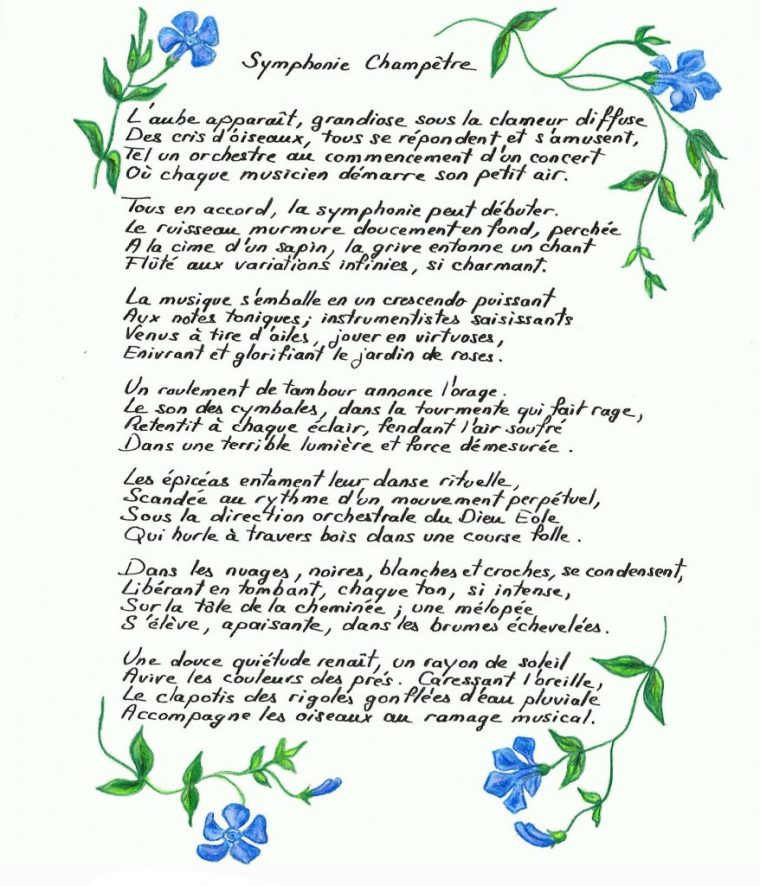 Symphonie Champêtre
L'aube apparaît, grandiose sous la clameur diffuse
Des cris d'oiseaux, tous se répondent et s'amusent,
Tel un orchestre au commencement d'un concert
Où chaque musicien démarre son petit air.
Tous en accord, la symphonie peut débuter.
Le ruisseau murmure doucement en fond, perchée
A la cime d'un sapin, la grive entonne un chant
Flûté aux variations infinies, si charmant.
La musique s'emballe en un crescendo puissant
Aux notes toniques; instrumentistes saisissants
Venus à tire d'ailes, jouer en virtuoses,
Enivrant et glorifiant le jardin de roses.
Un roulement de tambour annonce l'orage.
Le son des cymbales, dans la tourmente qui fait rage,
Retentit à chaque éclair, fendant l'air soufré
Dans une terrible lumière et force démesurée.
Les épicéas entament leur danse rituelle,
Scandée au rythme d'un mouvement perpétuel,
Sous la direction orchestrale du Dieu Eole
Qui hurle à travers bois dans une course folle.
Dans les nuages, noires, blanches et croches, se condensent,
Libérant en tombant, chaque ton, si intense,
Sur la tôle de la cheminée; une mélopée
S'élève, apaisante, dans les brumes échevelées.
Une douce quiétude renaît, un rayon de soleil
Avive les couleurs des prés. Caressant l'oreille,
Le clapotis des rigoles gonflées d'eau pluviale
Accompagne les oiseaux au ramage musical.